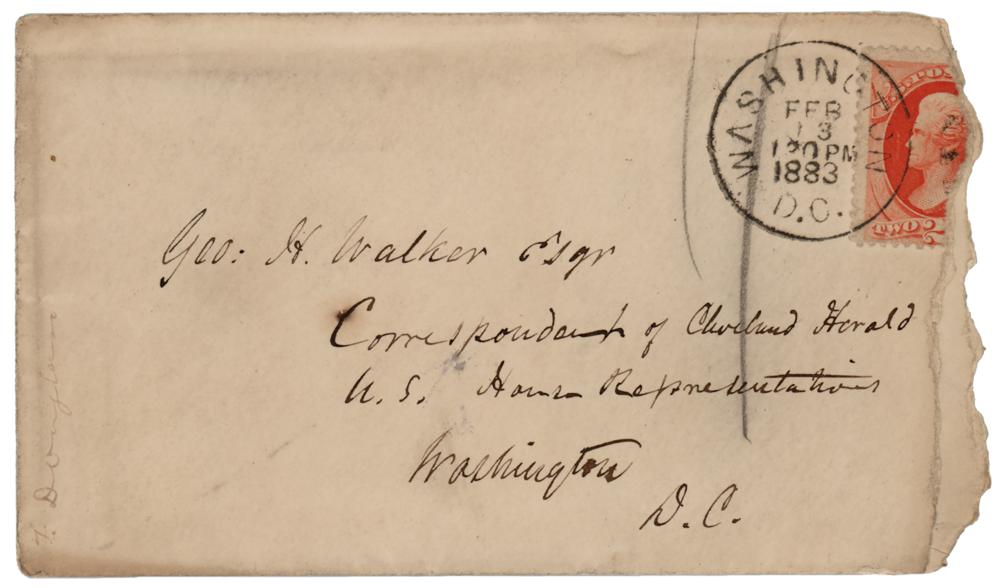 WASHINGTON
FEB
13
130 PM
1883
D.C.
U.S. POS
TWO
Geo: H. Walker Esqr
Correspondent of Cleveland Herald
U.S. House Representatives
Washington
D.C.